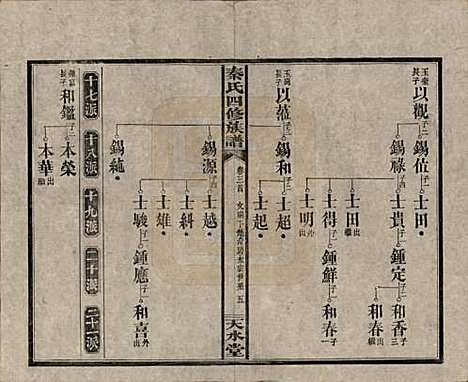 玉榮長子
以觀子二
錫值子一
士田
錫祿子一
士貴子一
鍾定子二
和香出繼
和春出繼
玉
以蒞子二
錫和子五
士田出繼
士得子一
鍾鮮子一
和春
士明外出
士超
士起
秦氏四修族譜
卷三 首
五
天水堂
錫源子四
士越
士斜
士雄
士駿子一
鍾應子一
和喜外出
錫純
長子
和鑑子二
木榮
木華出繼
十七派
十八派
十九派
二十派
二十一派